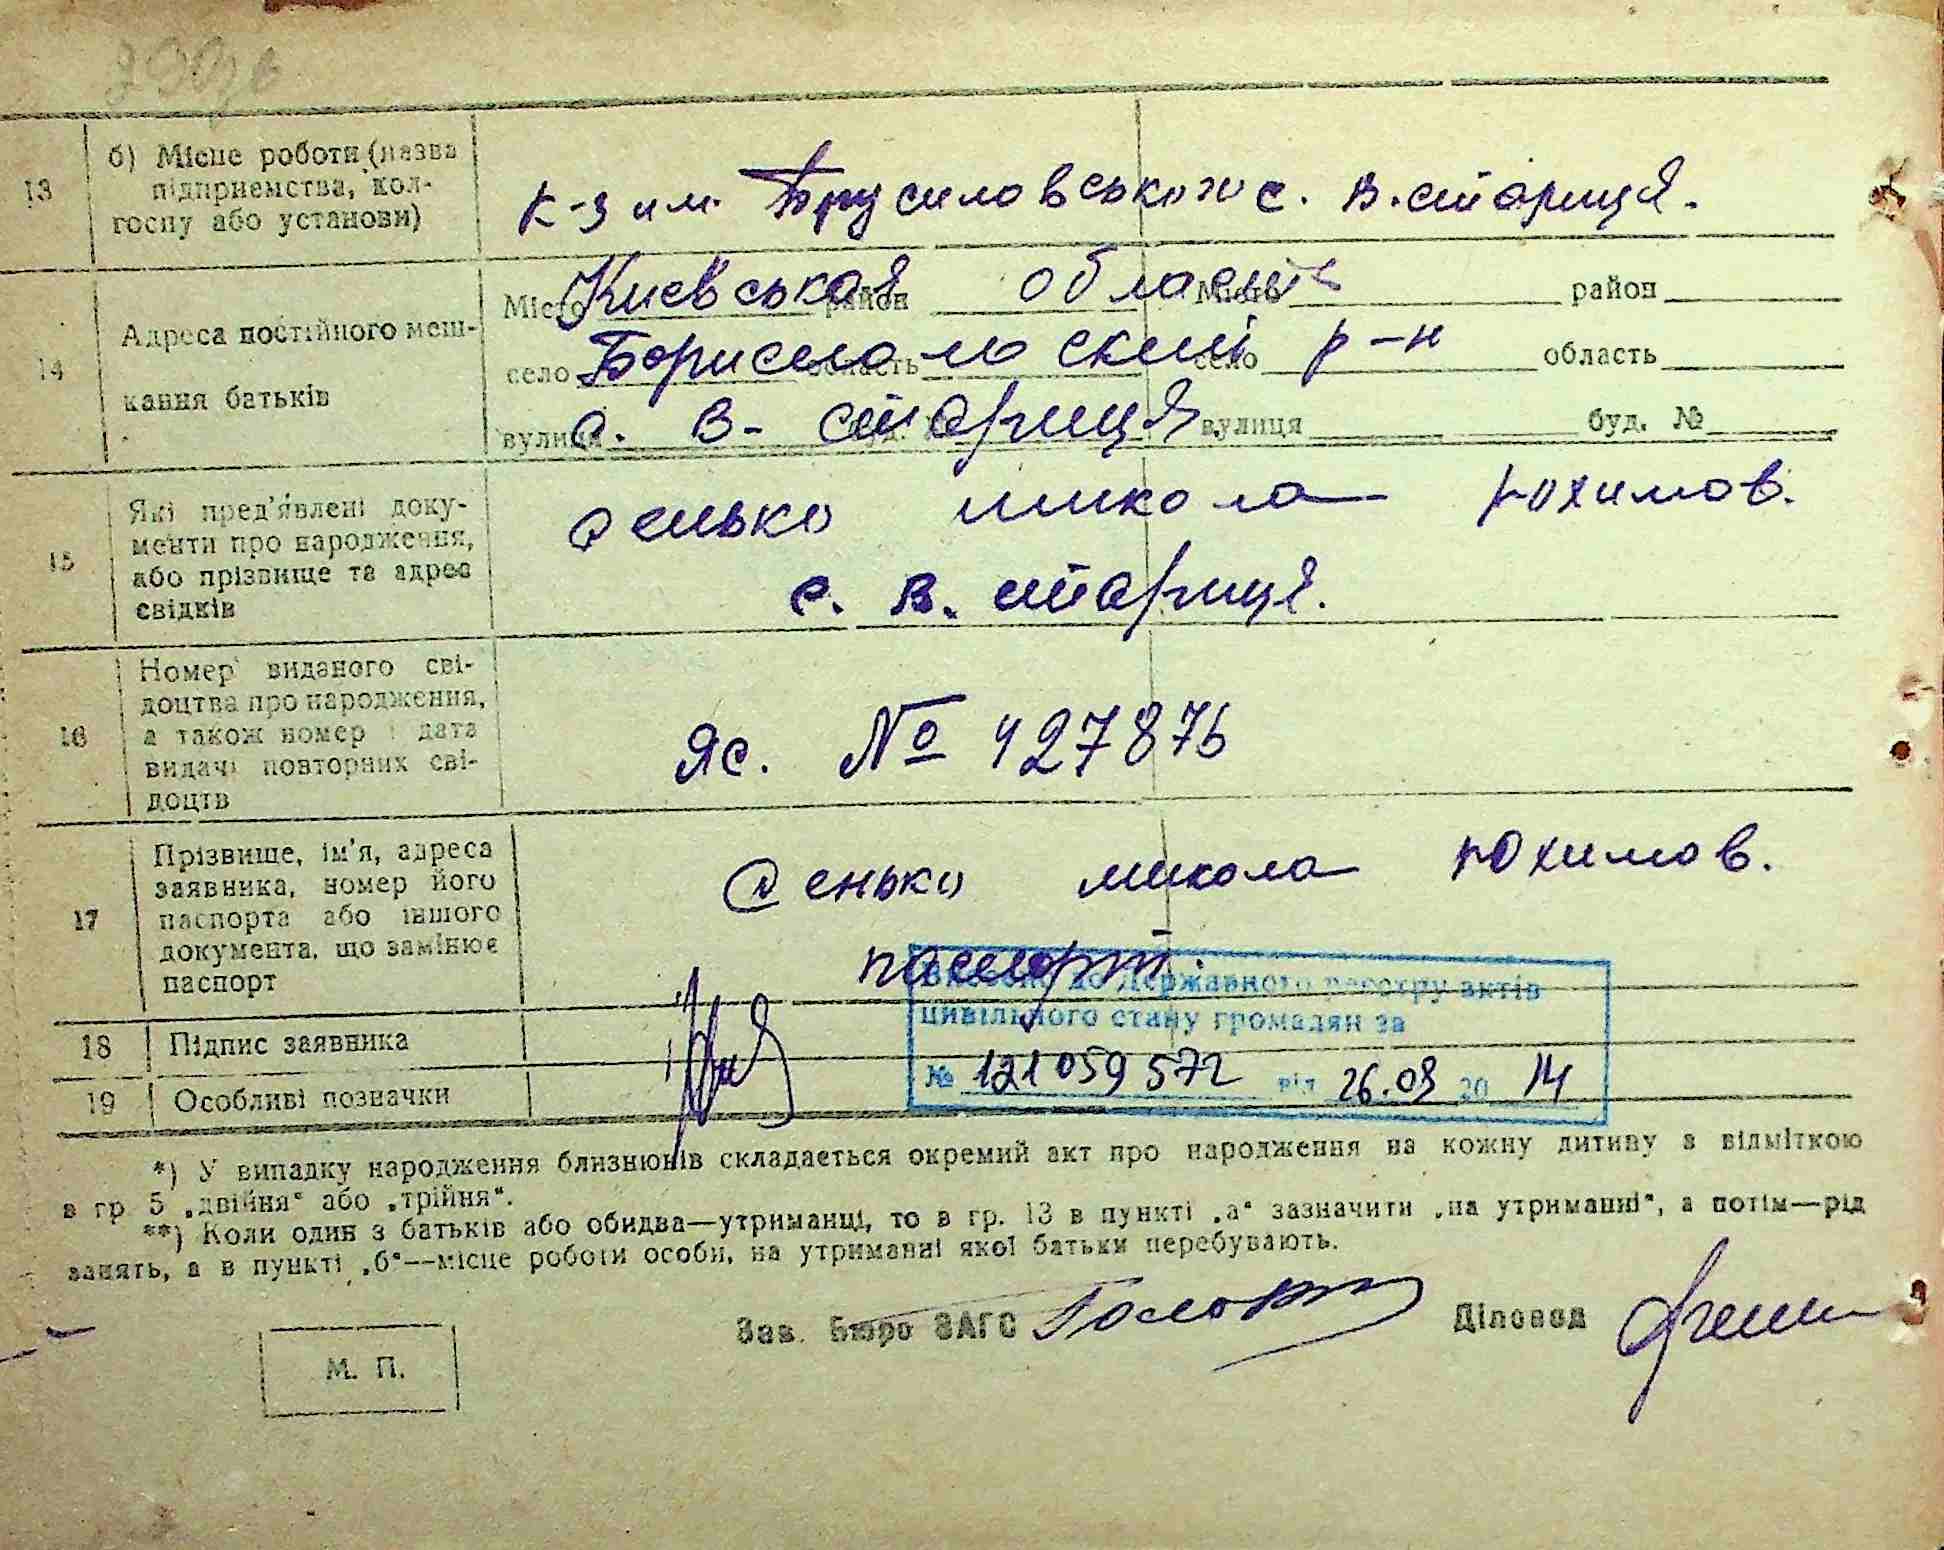 13
б) Місце роботи (назва
підприємства, кол-
госпу або установи)
к-з им. Брусиловського с. В. стариця.
14
Адреса постійного меш-
кання батьків
Місто район Місто район
Киевськая область
село область село область
Бориспольский р-н
вулиця вулиця буд. №
с. В- стариця
15
Які пред'явлені доку-
менти про народження,
або прізвище та адрес
свідків
Сенько микола юхимов.
с. В. стариця.
16
Номер виданого сві-
доцтва про народження,
а також номер і дата
видачі повторних сві-
доцтв
Яс. № 427876
17
Прізвище, ім'я, адреса
заявника, номер його
паспорта або іншого
документа, що замінює
паспорт
Сенько микола юхимов.
паспорт.
Внесено до Державного реєстру актів
цивільного стану громадян за
№ 121059572 від 26.03 2014
18
Підпис заявника
19
Особливі позначки
*) У випадку народження близнюків складається окремий акт про народження на кожну дитину з відміткою
в гр 5 „двійня“ або „трійня“.
**) Коли один з батьків або обидва—утриманці, то в гр. 13 в пункті „а“ зазначити „на утриманні“, а потім—рід
занять, а в пункті „б“—місце роботи особи, на утриманні якої батьки перебувають.
Зав. Бюро ЗАГС Діловод
М. П.